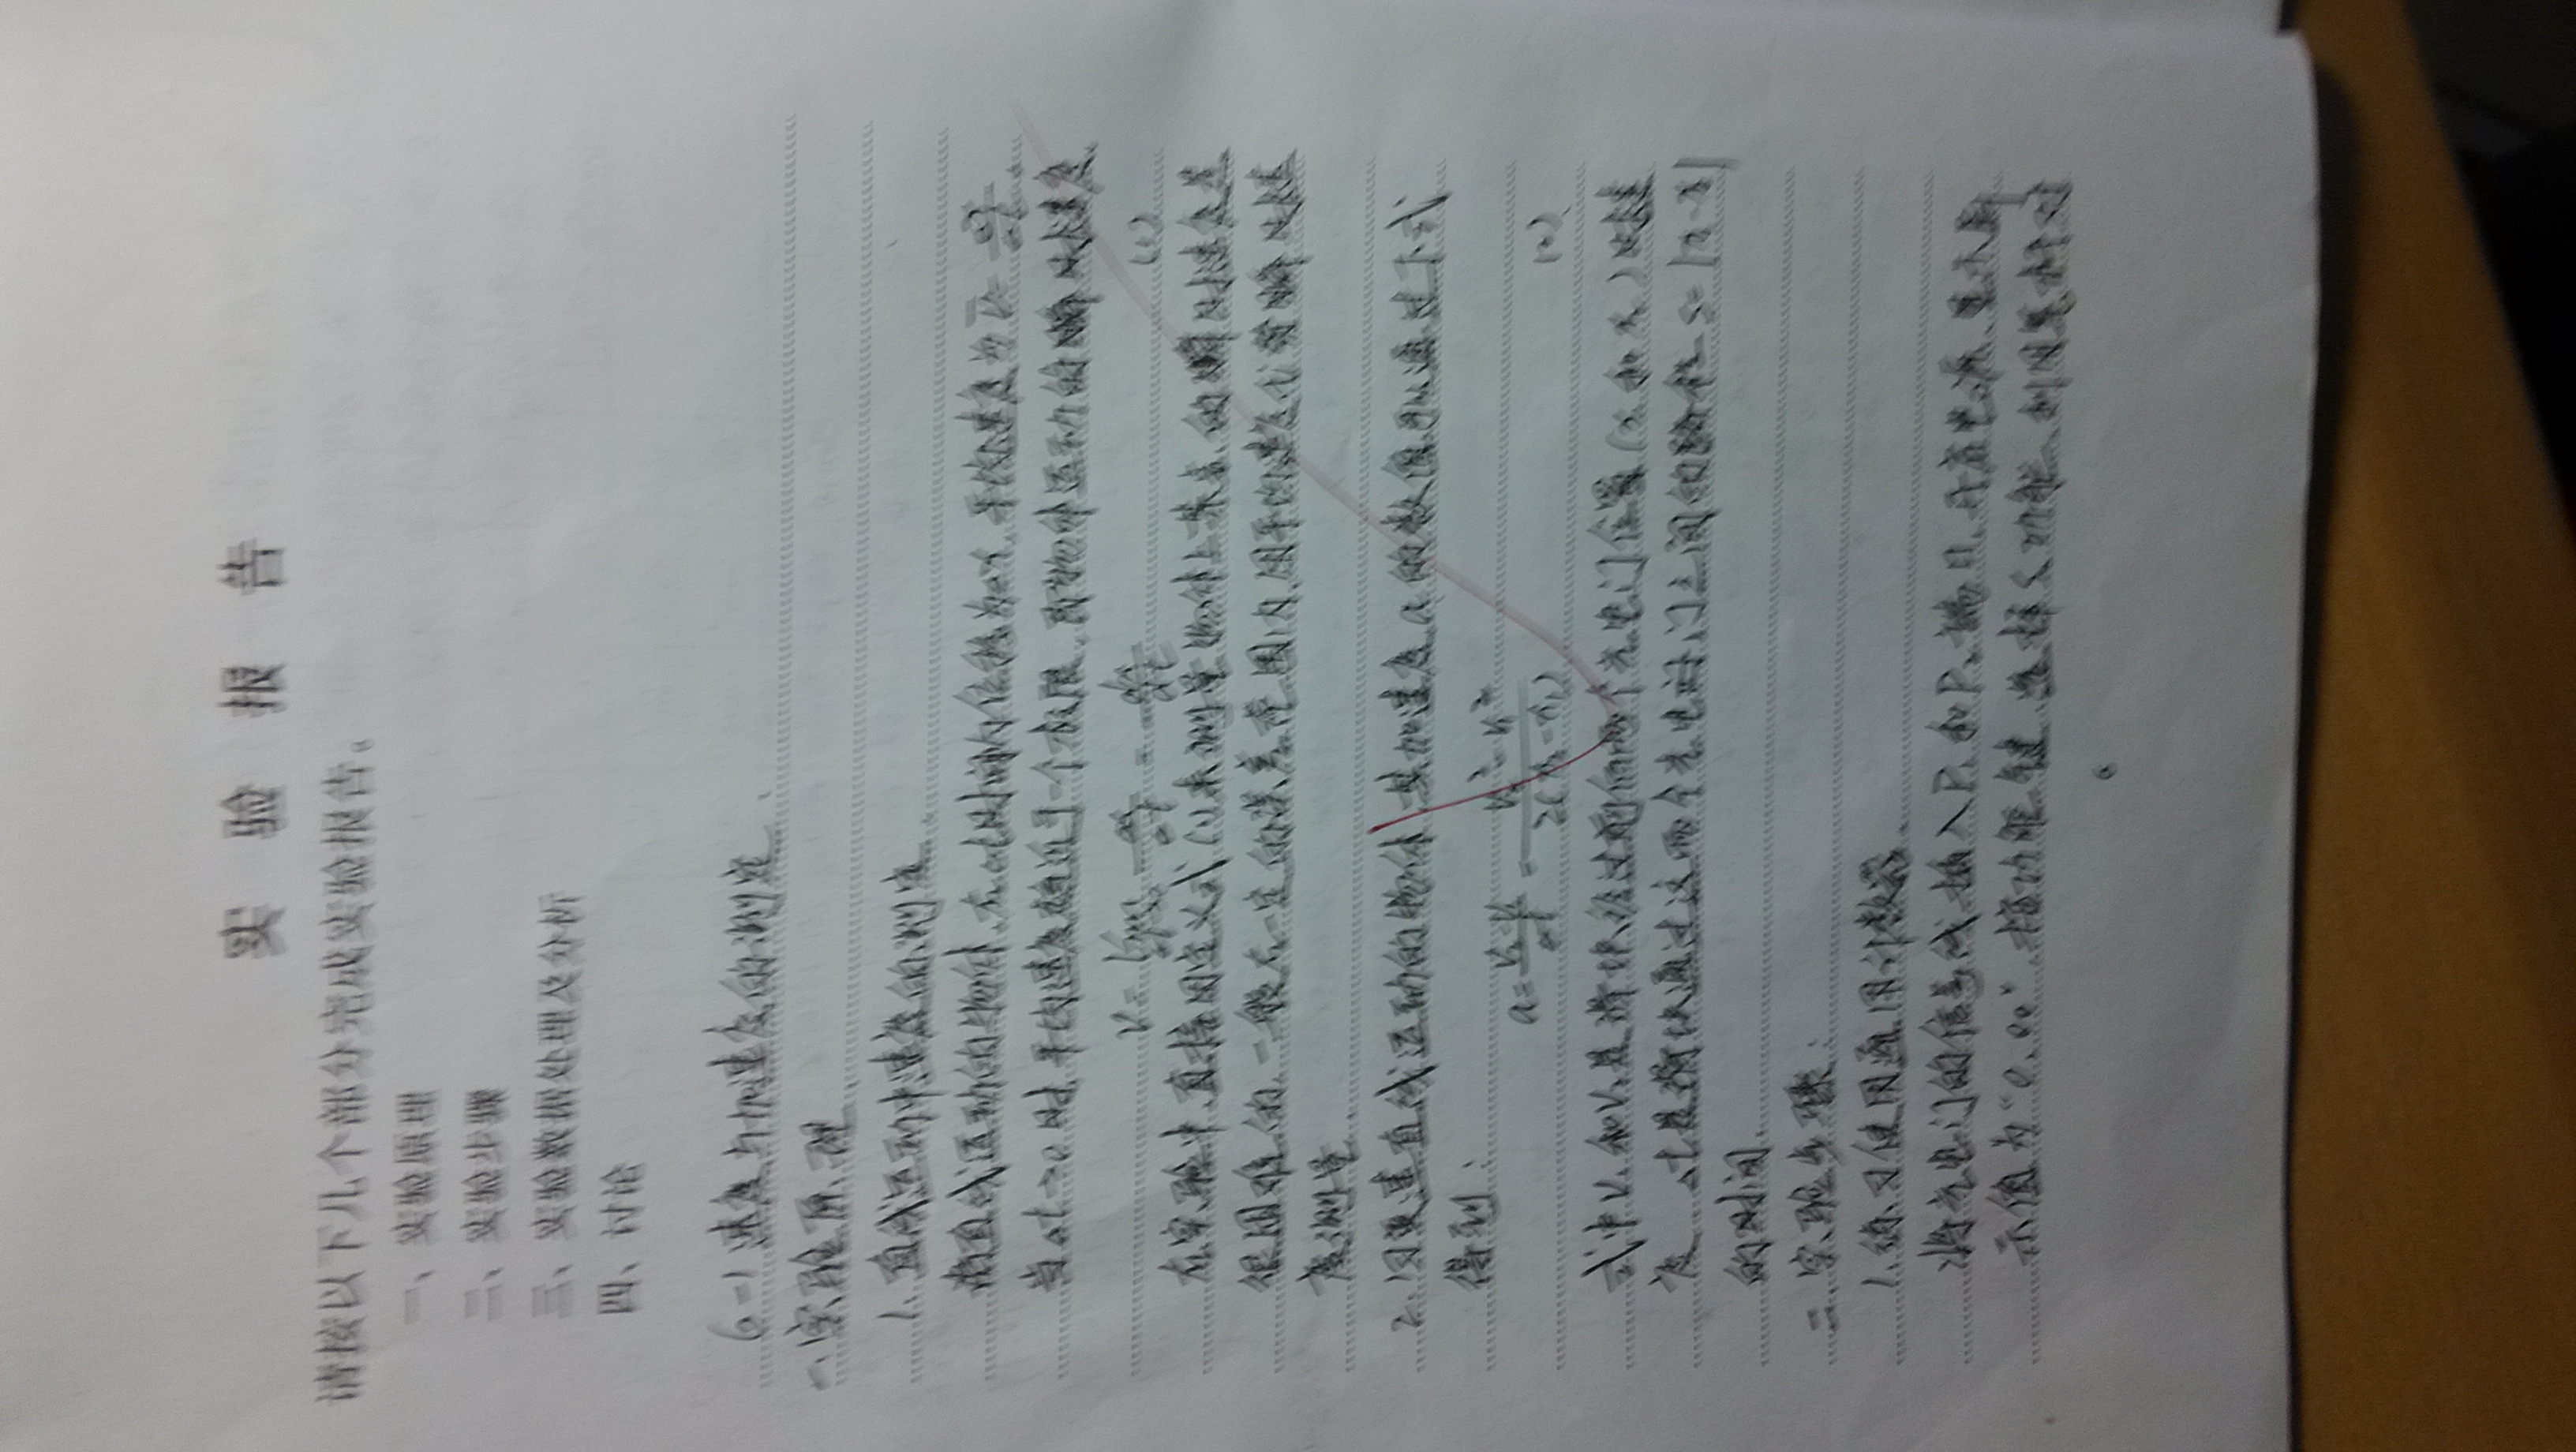 实 验 报 告
请按以下几个部分完成实验报告。
一、实验原理
二、实验步骤
三、实验数据处理及分析
四、讨论
6-1 速度与加速度的测定
一、实验原理
1、直线运动中速度的测定
做直线运动的物体,在Δt时间内位移为Δx,平均速度为 v̄=Δx/Δt.
当Δt→0时,平均速度趋近于一个极限,即物体运动的瞬时速度.
v= lim Δx/Δt = dx/dt (1)
在实验中直接用定义式(1)来测量物体上某点的瞬时速度是
很困难的,一般在一定的误差范围内,用平均速度代替瞬时速
度测量.
2、匀变速直线运动的物体,其加速度a的数值可以通过下式
得到:
a= (v₂-v₁)/Δt = (v₂²-v₁²)/2(x₂-x₁) (2)
式中v₁和v₂是滑块经过两个光电门位置(x₁和x₂)时速
度,Δt是滑块通过这两个光电门之间的路程 s=|x₂-x₁|
的时间.
二、实验步骤:
1、练习使用通用计数器.
将光电门的信号线插入P₁和P₂插口,开启电源,显示窗口
示值为“0.00”.按功能键,选择S₂功能,